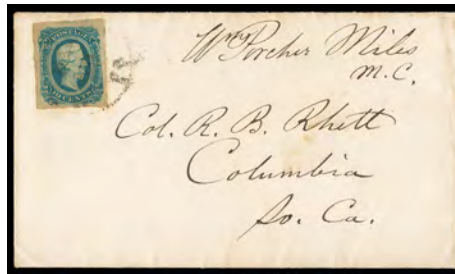 POSTAGE
Wm Porcher Miles
M.C.
Col. R. B. Rhett
Columbia
So. Ca.